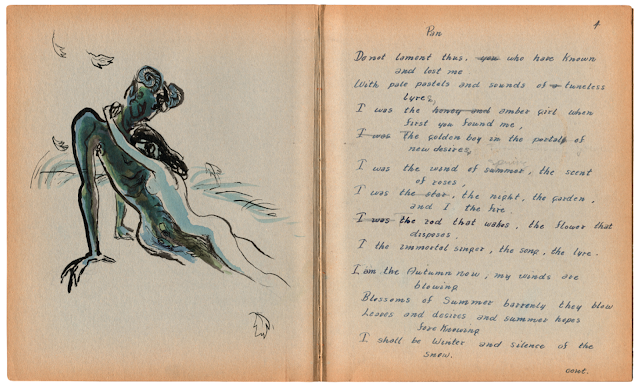 4.
Pan
Do not lament thus, you who have known
and lost me
With pale pastels and sounds of a tuneless
lyre,
I was the honey and amber girl when
first you found me,
I was the golden boy in the portals of
new desires,
I was the wind of summer, the scent
of roses,
I was the star, the night, the garden,
and I the fire.
I was the rod that wakes, the flower that
disposes.
I the immortal singer, the song, the lyre.
I am the Autumn now, my winds are
blowing
Blossoms of Summer barrenly they blow
Leaves and desires and summer hopes
fore knowing
I shall be Winter and silence of the
snow.
cont.